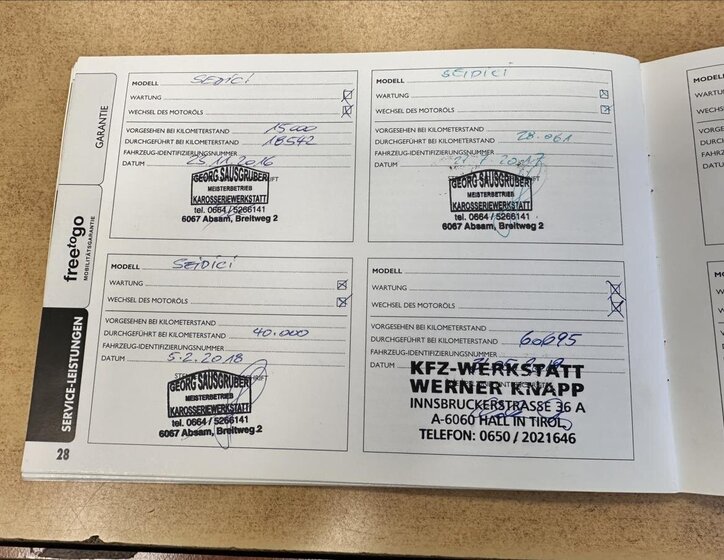 GARANTIE
freetogo
MOBILITÄTSGARANTIE
SERVICE-LEISTUNGEN
28
MODELL SEDICI
WARTUNG
WECHSEL DES MOTORÖLS
VORGESEHEN BEI KILOMETERSTAND 15000
DURCHGEFÜHRT BEI KILOMETERSTAND 18542
FAHRZEUG-IDENTIFIZIERUNGSNUMMER
DATUM 25.11.2016
GEORG SAUSGRUBER
MEISTERBETRIEB
KAROSSERIEWERKSTATT
tel. 0664 / 5266141
6067 Absam, Breitweg 2
MODELL SEIDICI
WARTUNG
WECHSEL DES MOTORÖLS
VORGESEHEN BEI KILOMETERSTAND
DURCHGEFÜHRT BEI KILOMETERSTAND 28.061
FAHRZEUG-IDENTIFIZIERUNGSNUMMER
DATUM 21.7.2017
GEORG SAUSGRUBER
MEISTERBETRIEB
KAROSSERIEWERKSTATT
tel. 0664 / 5266141
6067 Absam, Breitweg 2
MODELL SEIDICI
WARTUNG
WECHSEL DES MOTORÖLS
VORGESEHEN BEI KILOMETERSTAND
DURCHGEFÜHRT BEI KILOMETERSTAND 40.000
FAHRZEUG-IDENTIFIZIERUNGSNUMMER
DATUM 5.2.2018
GEORG SAUSGRUBER
MEISTERBETRIEB
KAROSSERIEWERKSTATT
tel. 0664 / 5266141
6067 Absam, Breitweg 2
MODELL
WARTUNG
WECHSEL DES MOTORÖLS
VORGESEHEN BEI KILOMETERSTAND
DURCHGEFÜHRT BEI KILOMETERSTAND 60695
FAHRZEUG-IDENTIFIZIERUNGSNUMMER
DATUM
KFZ-WERKSTATT
WERNER KNAPP
INNSBRUCKERSTRASSE 36 A
A-6060 HALL IN TIROL
TELEFON: 0650 / 2021646
MODELL